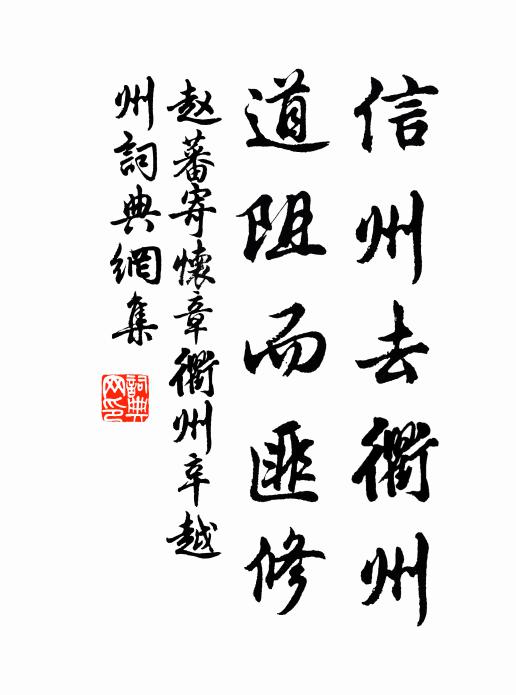 信州去衢州
道阻而匪修
赵蕃寄懷章衢州卒越
州詞典網集
詞典
网印